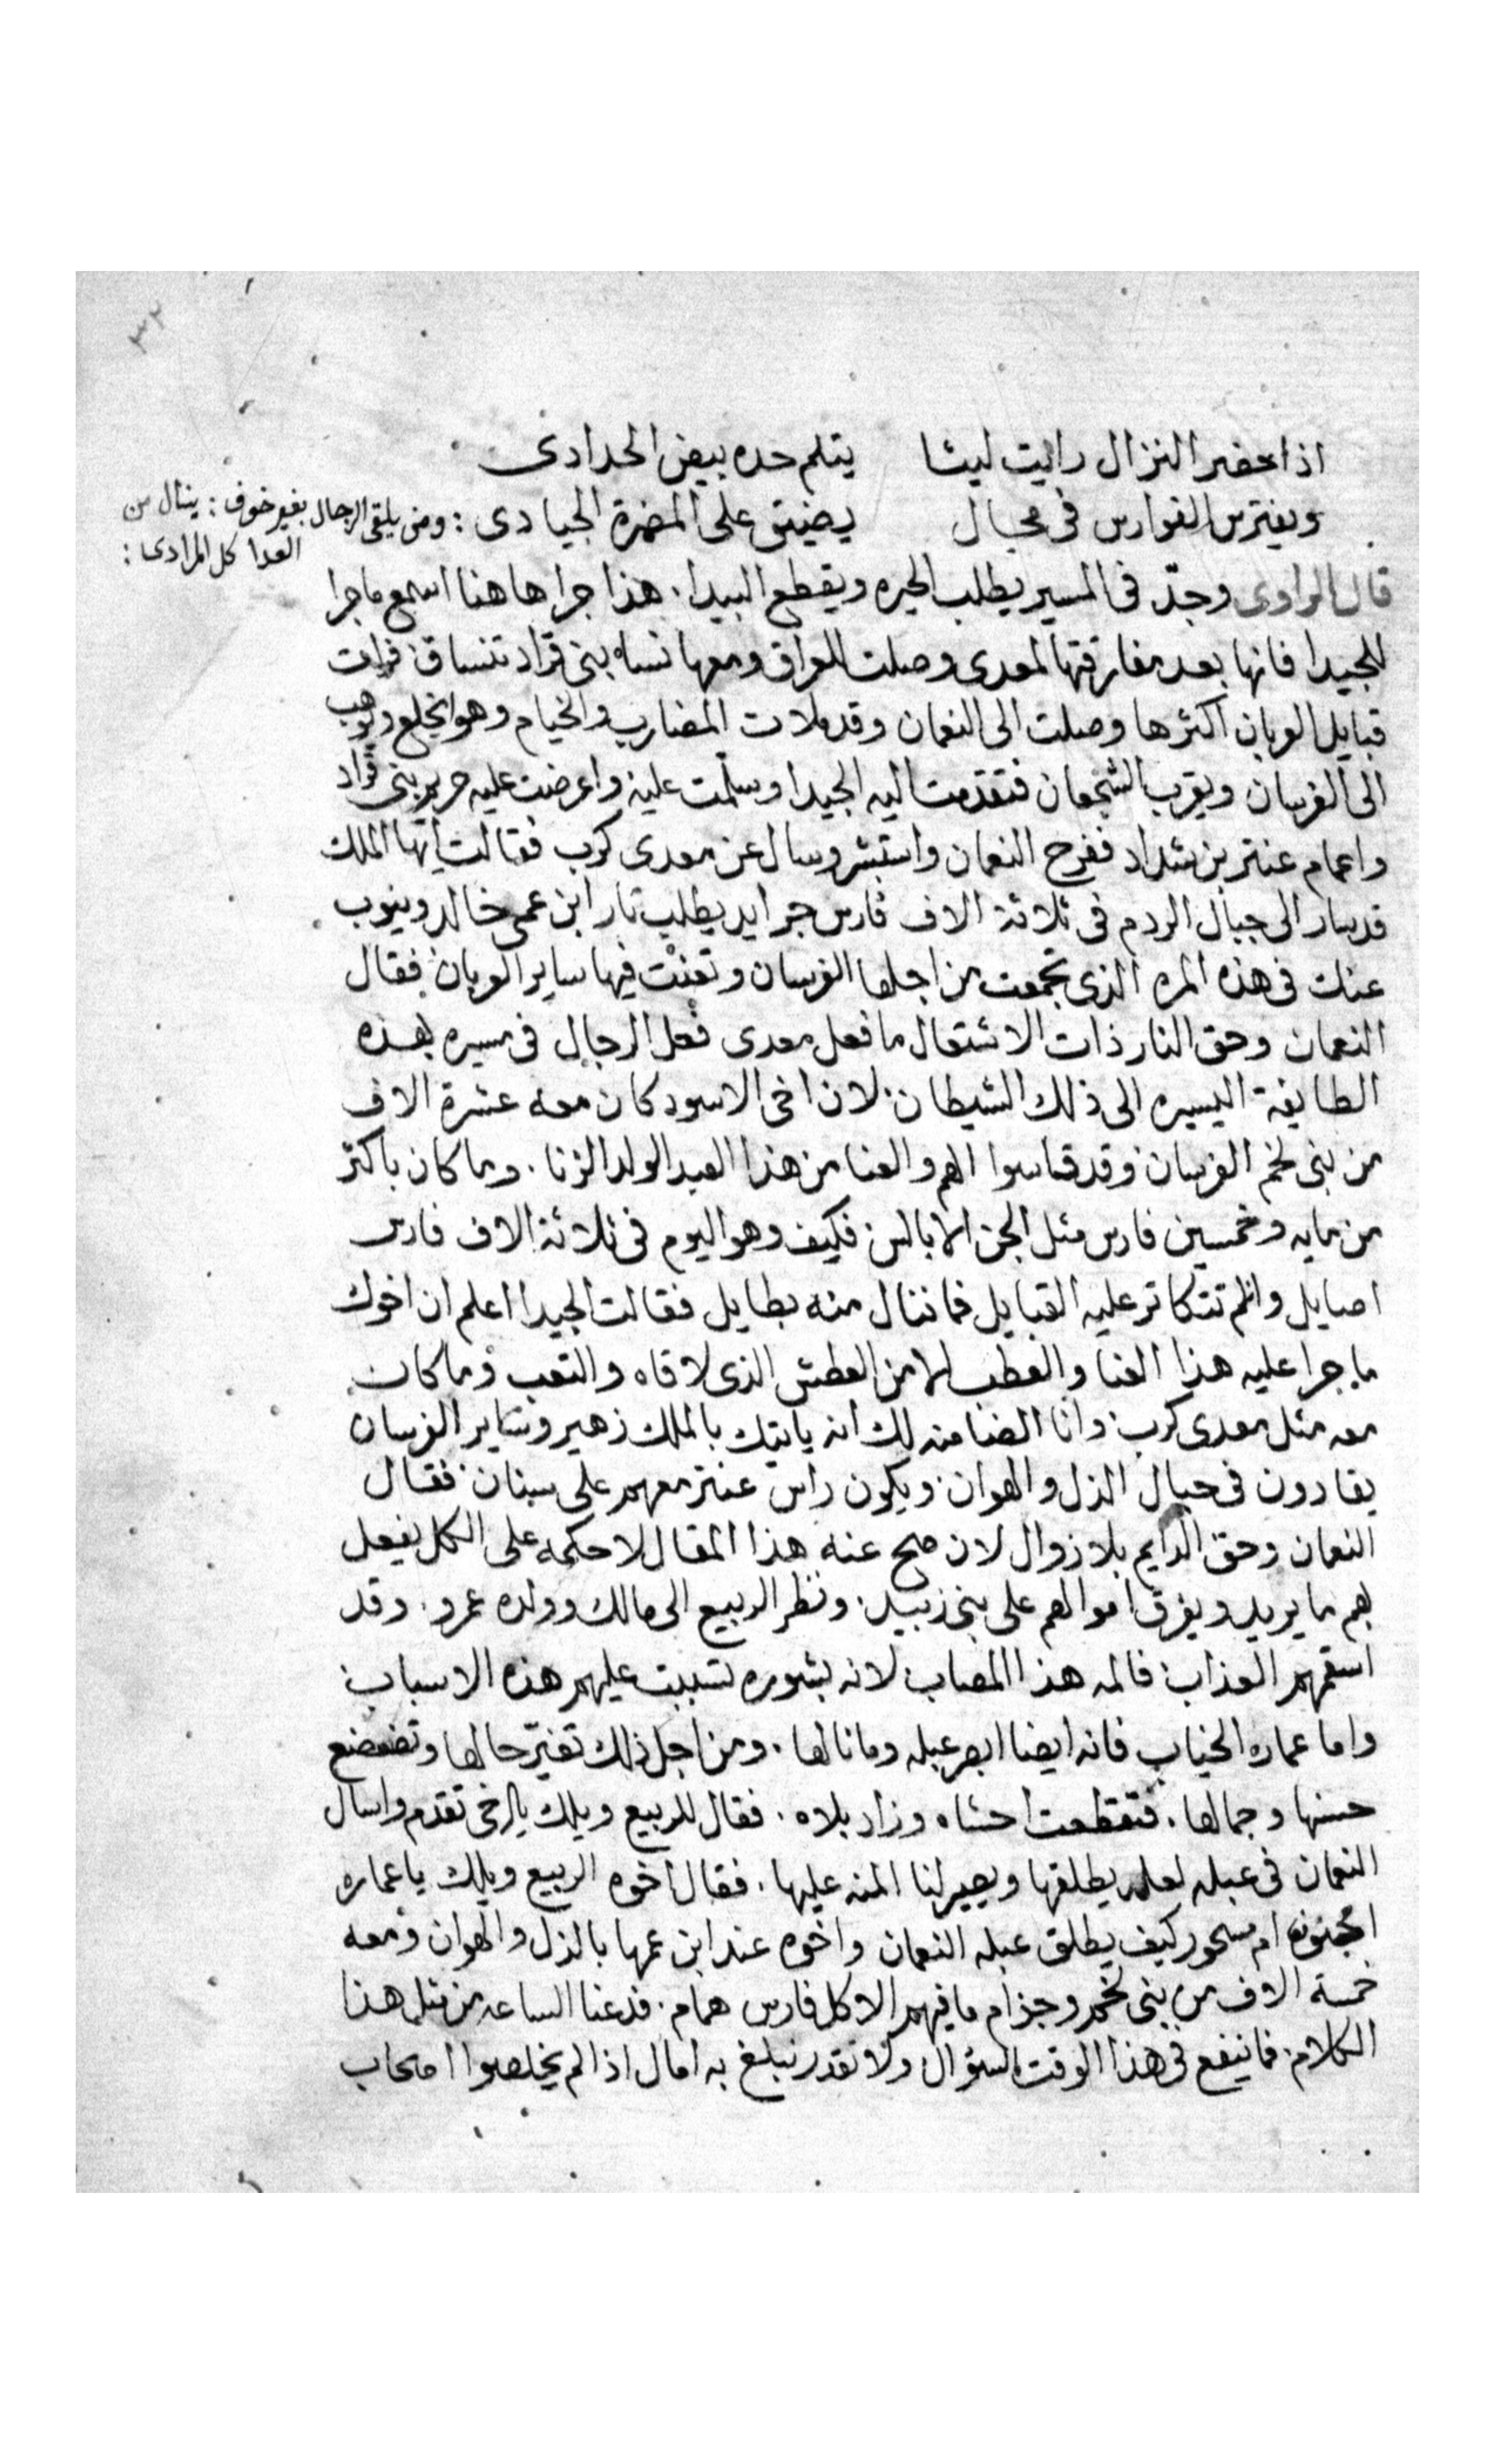 ٣٢
اذا حضر النزال رايت ليثا يتلم حده بيض الحدادى
ويفترس الفوارس فى مجال يضيق على المضمرة الجيادى : ومن يلتقى الرجال بغير خوف : ينال من
العدا كل المرادى :
قال الراوى وجدّ فى المسير يطلب الحيره ويقطع البيدا . هذا جرا هاهنا اسمع ماجرا
للجيدا فانها بعد مفارقتها لمعدى وصلت للعراق ومعها نساء بنى قراد تنساق فرات
قبايل العربان اكثرها وصلت الى النعمان وقد ملات المضارب والخيام وهو يخلع ويوهب
الى الفرسان ويقرب الشجعان فتقدمت اليه الجيدا وسلّمت عليه واعرضت عليه حريم بنى قراد
واعمام عنتر بن شداد ففرح النعمان واستبشر وسال عن معدى كرب فقالت ايّها الملك
قد سار الى جبال الردم فى ثلاثة الاف فارس جرايد يطلب تار ابن عمى خالد وينوب
عنك فى هذه المره الذى تجمعت من اجلها الفرسان وتعنّت فيها ساير العربان فقال
النعمان وحق النار ذات الاشتعال ما فعل معدى فعل الرجال فى مسيره بهذه
الطايفة اليسيره الى ذلك الشيطان لان اخى الاسود كان معه عشرة الاف
من بنى لخم الفرسان وقد قاسوا الهم والعنا من هذا العبد الولد الزنا . وما كان باكثر
من مايه وخمسين فارس مثل الجن الابالس فكيف وهو اليوم فى ثلاثة الاف فارس
اصايل وان لم تتكاتر عليه القبايل فما ننال منه بطايل فقالت الجيدا اعلم ان اخوك
ما جرا عليه هذا العنا والعطب الا من العطش الذى لاقاه والتعب وما كان
معه مثل معدى كرب وانا الضامنه لك انه ياتيك بالملك زهير وساير الفرسان
يقادون فى حبال الذل والهوان ويكون راس عنتر معهم على سنان فقال
النعمان وحق الدايم بلا زوال لان صح عنه هذا المقال لاحكمه على الكل يفعل
بهم ما يريد ويفرق اموالهم على بنى زبيد . ونظر الربيع الى مالك وولده عمرو . وقد
اسقمهم العذاب فالمه هذا المصاب لانه بشوره تسببت عليهم هذه الاسباب
واما عماره الخياب فانه ايضا ابصر عبله ومانالها . ومن اجل ذلك تغيّر حالها وتضعضع
حسنها وجمالها . فتقطعت احشاه وزاد بلاه . فقال للربيع ويلك يا اخى تقدم واسال
النعمان فى عبله لعله يطلقها ويصير لنا المنه عليها . فقال اخوه الربيع ويلك ياعماره
امجنون ام مسحور كيف يطلق عبله النعمان واخوه عند ابن عمها بالذل والهوان ومعه
خمسة الاف من بنى لخم وجزام ما فيهم الا كل فارس همام . فدعنا الساعه من مثل هذا
الكلام فما ينفع فى هذا الوقت السؤال ولا نقدر نبلغ به امال اذا لم يخلصوا اصحاب